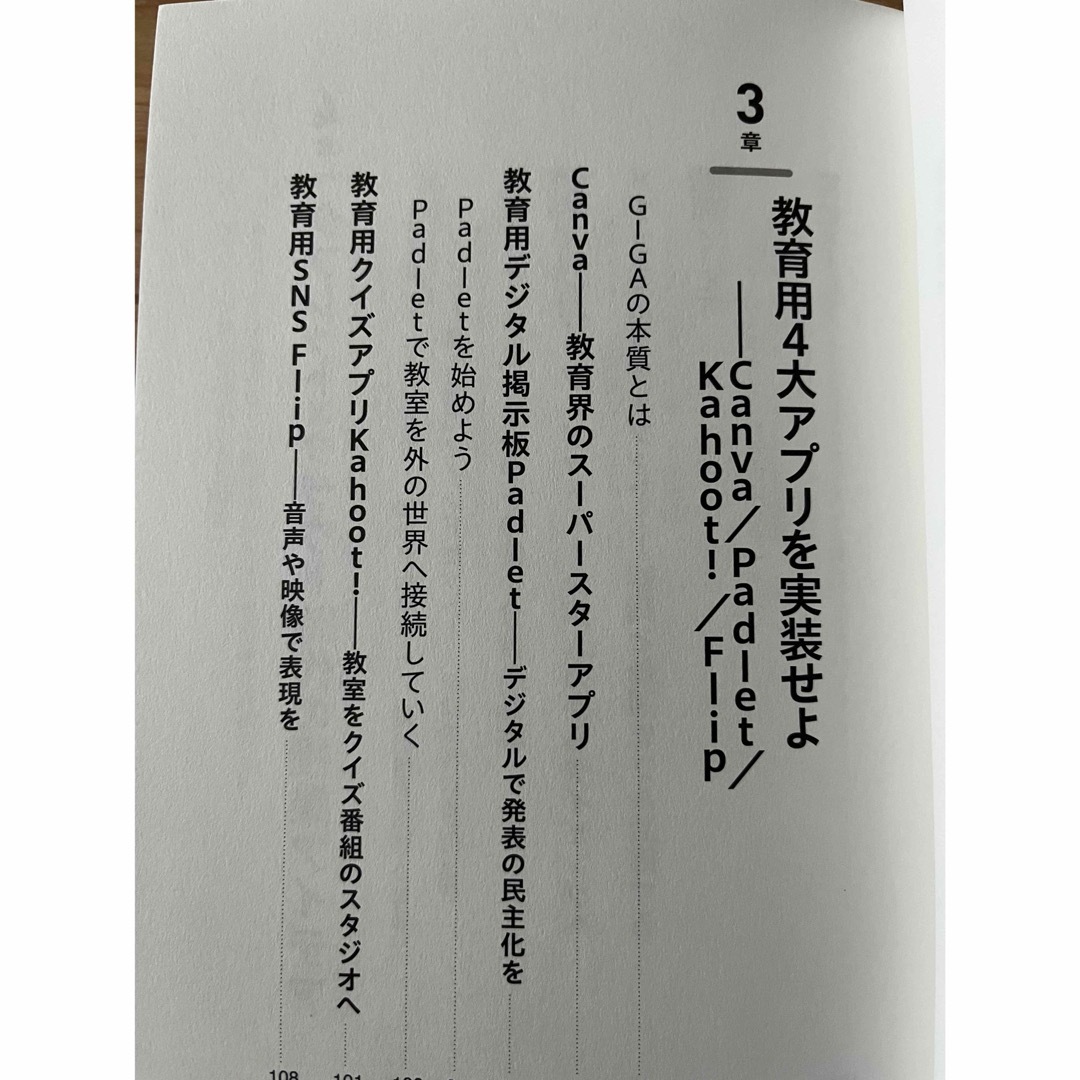 3章
教育用4大アプリを実装せよ
――Canva／Padlet／
Kahoot!／Flip
GIGAの本質とは
Canva――教育界のスーパースターアプリ
教育用デジタル掲示板Padlet――デジタルで発表の民主化を
Padletを始めよう
Padletで教室を外の世界へ接続していく
教育用クイズアプリKahoot!――教室をクイズ番組のスタジオへ
教育用SNS Flip――音声や映像で表現を
108